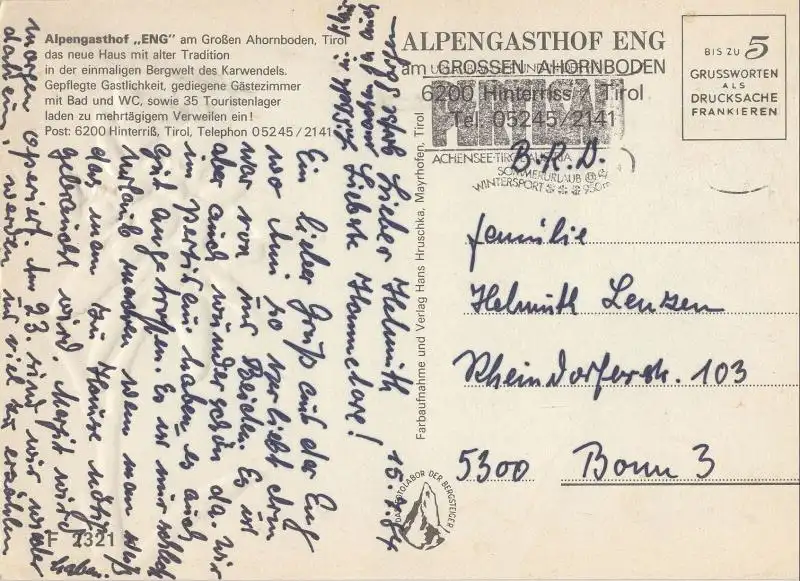 Alpengasthof „ENG" am Großen Ahornboden, Tirol
das neue Haus mit alter Tradition
in der einmaligen Bergwelt des Karwendels.
Gepflegte Gastlichkeit, gediegene Gästezimmer
mit Bad und WC, sowie 35 Touristenlager
laden zu mehrtägigem Verweilen ein!
Post: 6200 Hinterriß, Tirol, Telephon 05245/2141
ALPENGASTHOF ENG
am GROSSEN AHORNBODEN
6200 Hinterriss Tirol
Tel. 05245/2141
PERTISAU
ACHENSEE-TIROL-AUSTRIA
SOMMERURLAUB
WINTERSPORT 950m
BIS ZU 5
GRUSSWORTEN
ALS
DRUCKSACHE
FRANKIEREN
B.R.D.
Familie
Helmuth Lenzen
Rheindorferstr. 103
5300 Bonn 3
15.9.84
Lieber Helmuth
Liebe Hannelore!
Ein lieber Gruß aus der Eng
wo Ihr so verliebt drin
war von uns Beiden. Es ist
aber auch wunderschön da. Wir
in Pertisau haben es auch
gut angetroffen. Es ist nur schlecht
Urlaub machen wenn man weiß
das man zu Hause nötig
gebraucht wird. wird
morgen operiert. Am 23. sind wir wieder
daheim, werden uns viel zu erzählen
haben.
Farbaufnahme und Verlag Hans Hruschka, Mayrhofen, Tirol
DAS FOTOLABOR DER BERGSTEIGER
F 2321